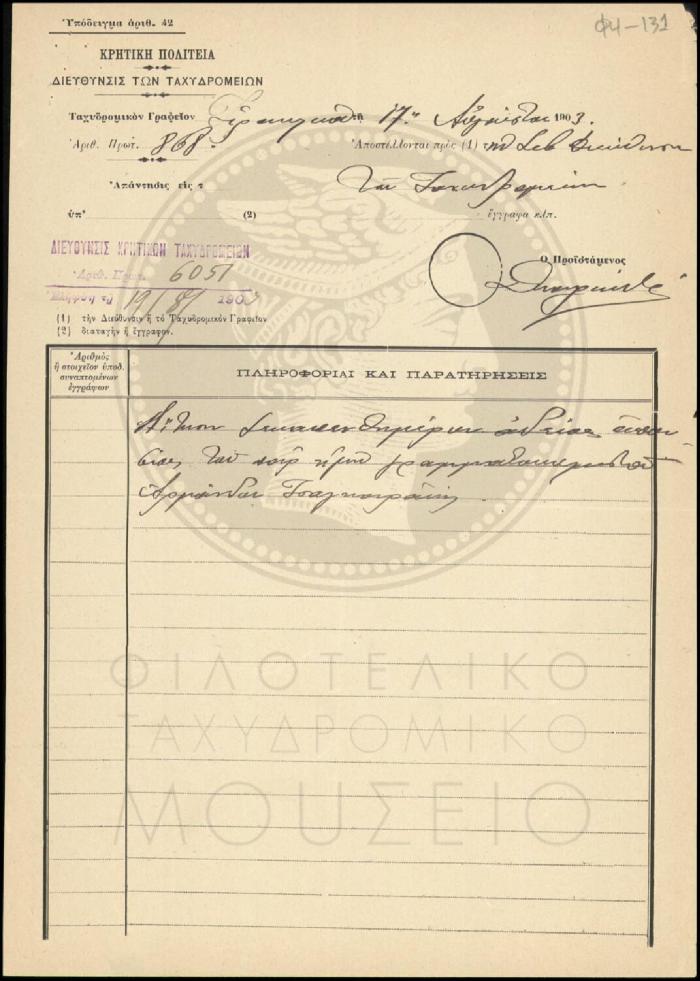 Ὑπόδειγμα ἀριθ. 42
Φ4-131
ΚΡΗΤΙΚΗ ΠΟΛΙΤΕΙΑ
ΔΙΕΥΘΥΝΣΙΣ ΤΩΝ ΤΑΧΥΔΡΟΜΕΙΩΝ
Ταχυδρομικὸν Γραφεῖον τῇ 17ῃ Αὐγούστου 1903.
Ἀριθ. Πρωτ. 868. Ἀποστέλλονται πρὸς (1) τὴν Σεβ Διεύθυνσιν
Ἀπάντησις εἰς τ τῶν Ταχυδρομείων
ὑπ' (2) ἔγγραφα κ.λπ.
ΔΙΕΥΘΥΝΣΙΣ ΚΡΗΤΙΚΩΝ ΤΑΧΥΔΡΟΜΕΙΩΝ
Ἀριθ. Πρωτ. 6051
Ἐλήφθη τῇ 19/8/ 1903
Ὁ Προϊστάμενος
(1) τὴν Διεύθυνσιν ἢ τὸ Ταχυδρομικὸν Γραφεῖον
(2) διαταγὴν ἢ ἔγγραφον.
Ἀριθμὸς
ἢ στοιχεῖον ὑποδ.
συναπτομένων
ἐγγράφων
ΠΛΗΡΟΦΟΡΙΑΙ ΚΑΙ ΠΑΡΑΤΗΡΗΣΕΙΣ
Αἴτησιν ἀδείας
τοῦ παρ' ἡμῖν
ΦΙΛΟΤΕΛΙΚΟ
ΤΑΧΥΔΡΟΜΙΚΟ
ΜΟΥΣΕΙΟ